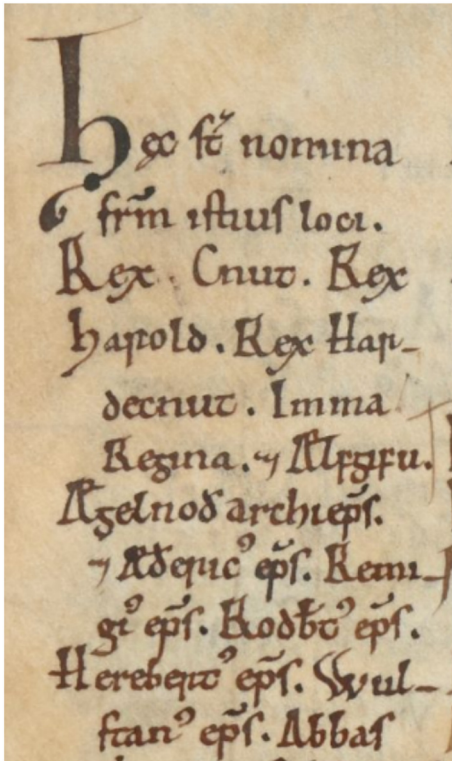 Hęc st̄ nomina
frm̄ istius loci.
Rex Cnut. Rex
harold. Rex Har-
decnut. Imma
Regina. ⁊ Ælfgifu.
Ægelnoð archiep̄s.
⁊ Æðericꝰ ep̄s. Remi-
giꝰ ep̄s. Rodb̄tꝰ ep̄s.
Herebertꝰ ep̄s. Wul-
stanꝰ ep̄s. Abbas